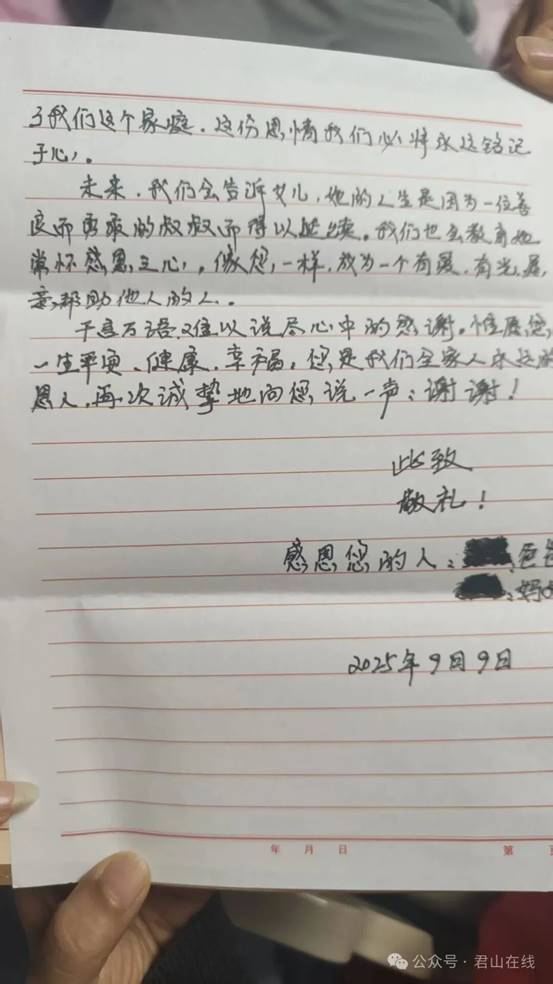 了我们这个家庭。这份恩情我们必将永远铭记
于心。
未来，我们会告诉女儿，她的人生是因为一位善
良而勇敢的叔叔而得以延续。我们也会教育她
常怀感恩之心，像您一样，成为一个有爱，有光，愿
意帮助他人的人。
千言万语难以说尽心中的感谢。惟愿您
一生平安、健康、幸福，您是我们全家人永远的
恩人，再次诚挚地向您说一声：谢谢！
此致
敬礼！
感恩您的人：爸爸
妈妈
2025年9月9日
年 月 日
第 页
公众号·君山在线